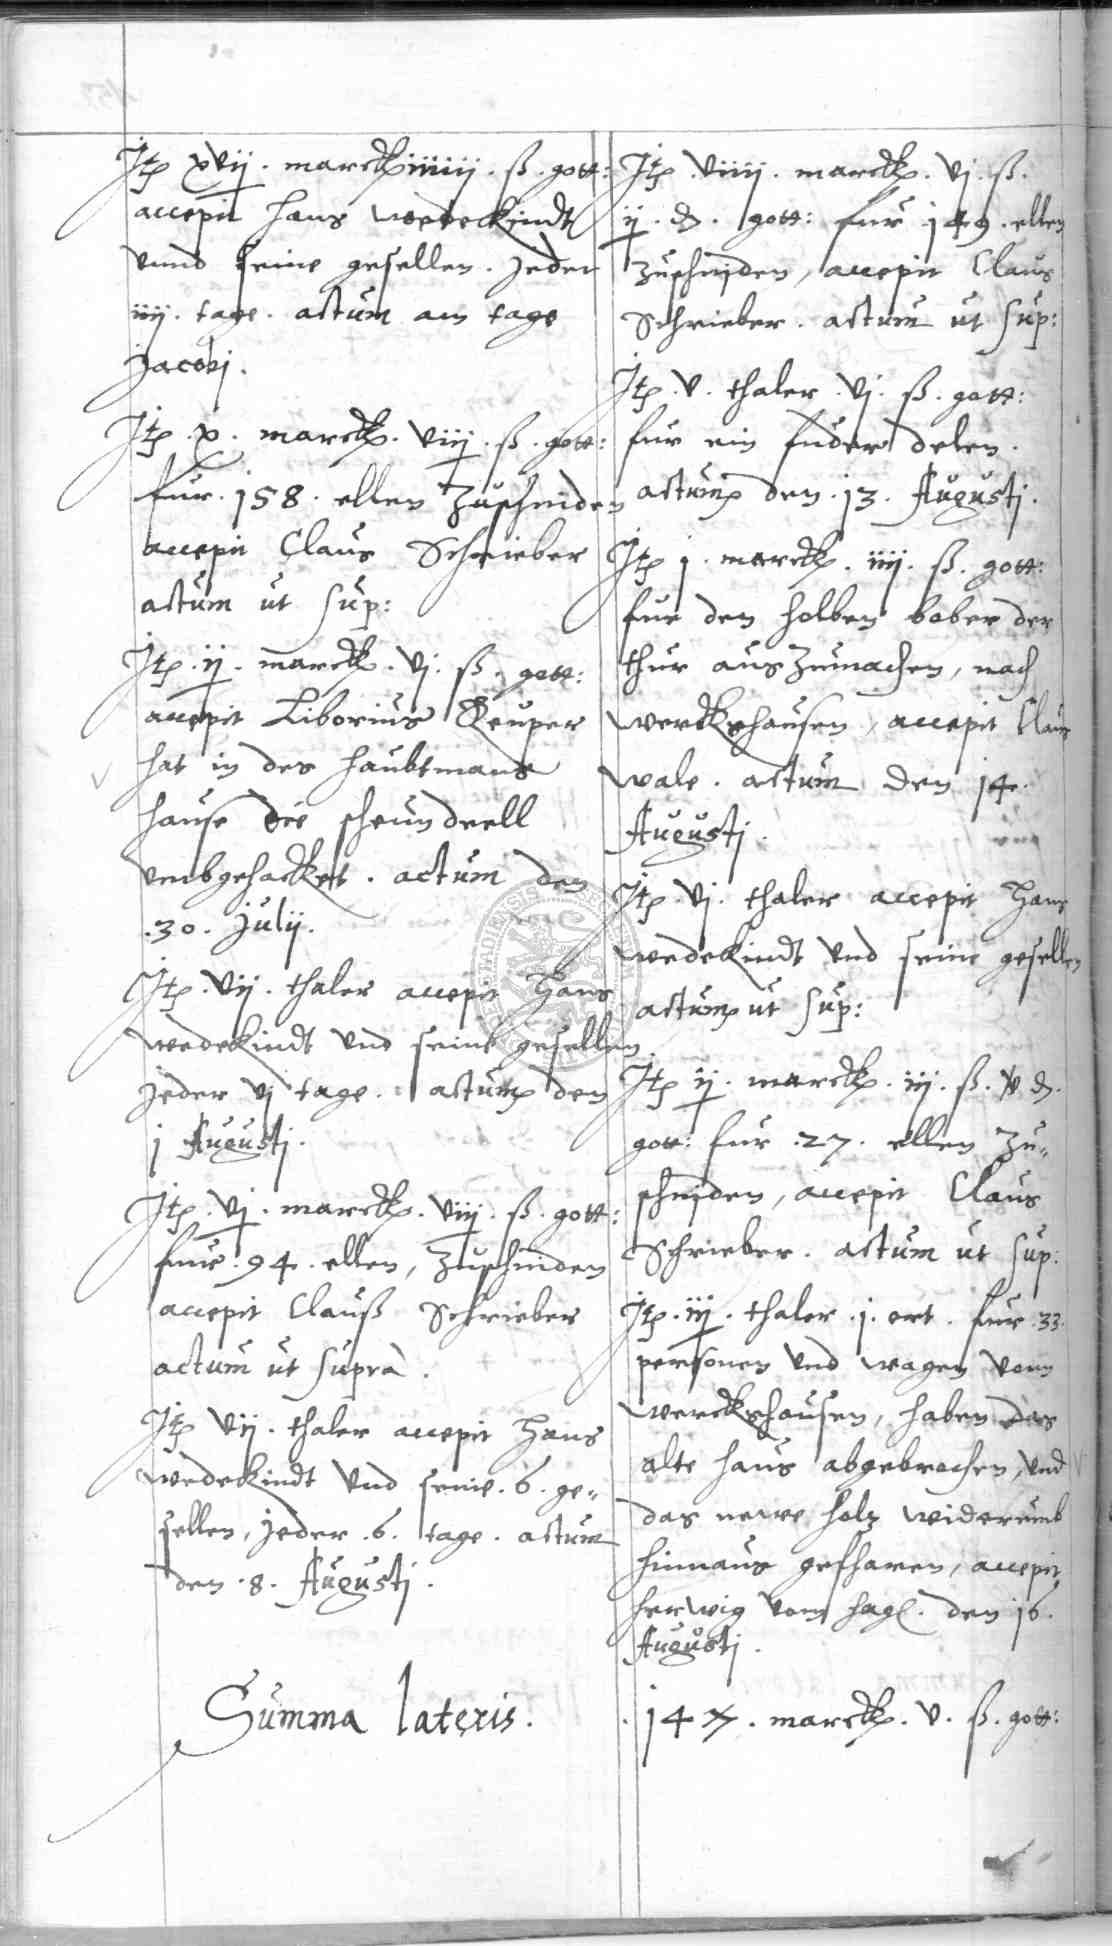 Itp xvij . marckp iiiiij . ß . gott:
accepit hans wedekindt
vnnd seine gesellen . jeder
iiij . tage . actum am tage
Jacobj .
Itp . x . marckp . viij . ß . gott:
fur . 158 . ellen zuschniden
accepit Claus Schrieber
actum ut sup:
Itp . ij . marckp . vj . ß . gott:
accepit Liborius Keuper
hat in des haubtmans
hause die scheundeell
vmbgehacket . actum den
. 30 . Julij .
Itp . vij . thaler accepit Hans
wedekindt vnd seine gesellen
jeder vj tage . actum den
j Augustj .
Itp . vj . marckp . viij . ß . gott:
fur . 94 . ellen , zuschniden
accepit Clauß Schrieber
actum ut supra .
Itp vij . thaler accepit Hans
wedekindt vnd seine . 6 . ge„
sellen , jeder . 6 . tage . actum
den . 8 . Augustj .
Summa lateris .
Itp . viiij . marckp . vj . ß .
ij . d . gott: fur 149 . ellen
zuschniden , accepit Claus
Schrieber . actum ut sup:
Itp . v . thaler . vj . ß . gott:
fur ein fuder delen .
actum den . 13 . Augustj .
Itp j . marckp . iiij . ß . gott:
fur den holben bober der
thur aus zumachen , nach
werckshausen , accepit Claus
wale . actum den 14 .
Augustj .
Itp . vj . thaler accepit Hans
wedekindt vnd seine gesellen
actum ut sup:
Itp ij . marckp . iij . ß . v d .
gott: fur . 27 . ellen zu„
schniden , accepit Claus
Schrieber . actum ut sup:
Itp . iij . thaler . j . ort . fur . 33 .
personen vnd wagen vonn
werckshausen , haben das
alte haus abgebrochen , vnd
das newe holz widerumb
hinnaus gefharen , accepit
herwig vom hagl . den 16 .
Augustj .
. 147 . marckp . v . ß . gott: